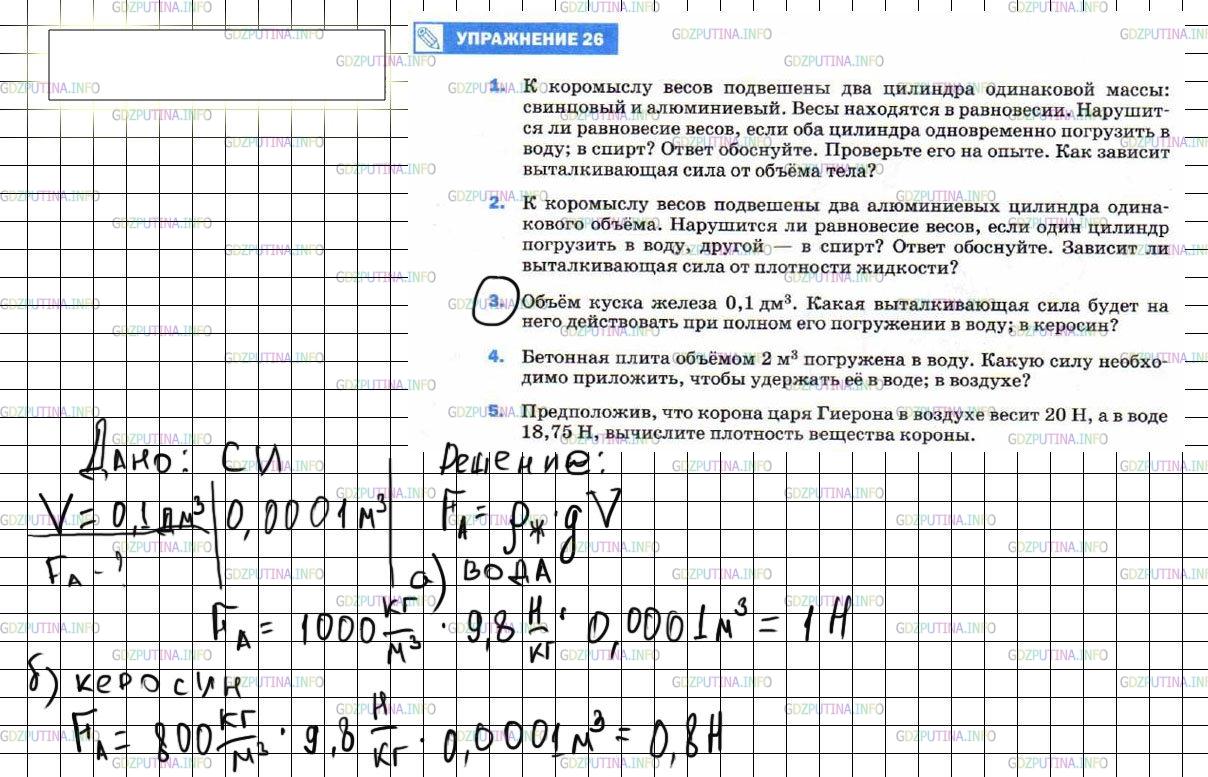 УПРАЖНЕНИЕ 26
1. К коромыслу весов подвешены два цилиндра одинаковой массы:
свинцовый и алюминиевый. Весы находятся в равновесии. Нарушит-
ся ли равновесие весов, если оба цилиндра одновременно погрузить в
воду; в спирт? Ответ обоснуйте. Проверьте его на опыте. Как зависит
выталкивающая сила от объёма тела?
2. К коромыслу весов подвешены два алюминиевых цилиндра одина-
кового объёма. Нарушится ли равновесие весов, если один цилиндр
погрузить в воду, другой — в спирт? Ответ обоснуйте. Зависит ли
выталкивающая сила от плотности жидкости?
3. Объём куска железа 0,1 дм³. Какая выталкивающая сила будет на
него действовать при полном его погружении в воду; в керосин?
4. Бетонная плита объёмом 2 м³ погружена в воду. Какую силу необхо-
димо приложить, чтобы удержать её в воде; в воздухе?
5. Предположив, что корона царя Гиерона в воздухе весит 20 Н, а в воде
18,75 Н, вычислите плотность вещества короны.
Дано: СИ Решение:
V = 0,1 дм³ 0,0001 м³ F_A = ρ_ж · g V
F_A - ?
а) вода
F_A = 1000 кг/м³ · 9,8 Н/кг · 0,0001 м³ = 1 Н
б) керосин
F_A = 800 кг/м³ · 9,8 Н/кг · 0,0001 м³ = 0,8 Н
GDZPUTINA.INFO